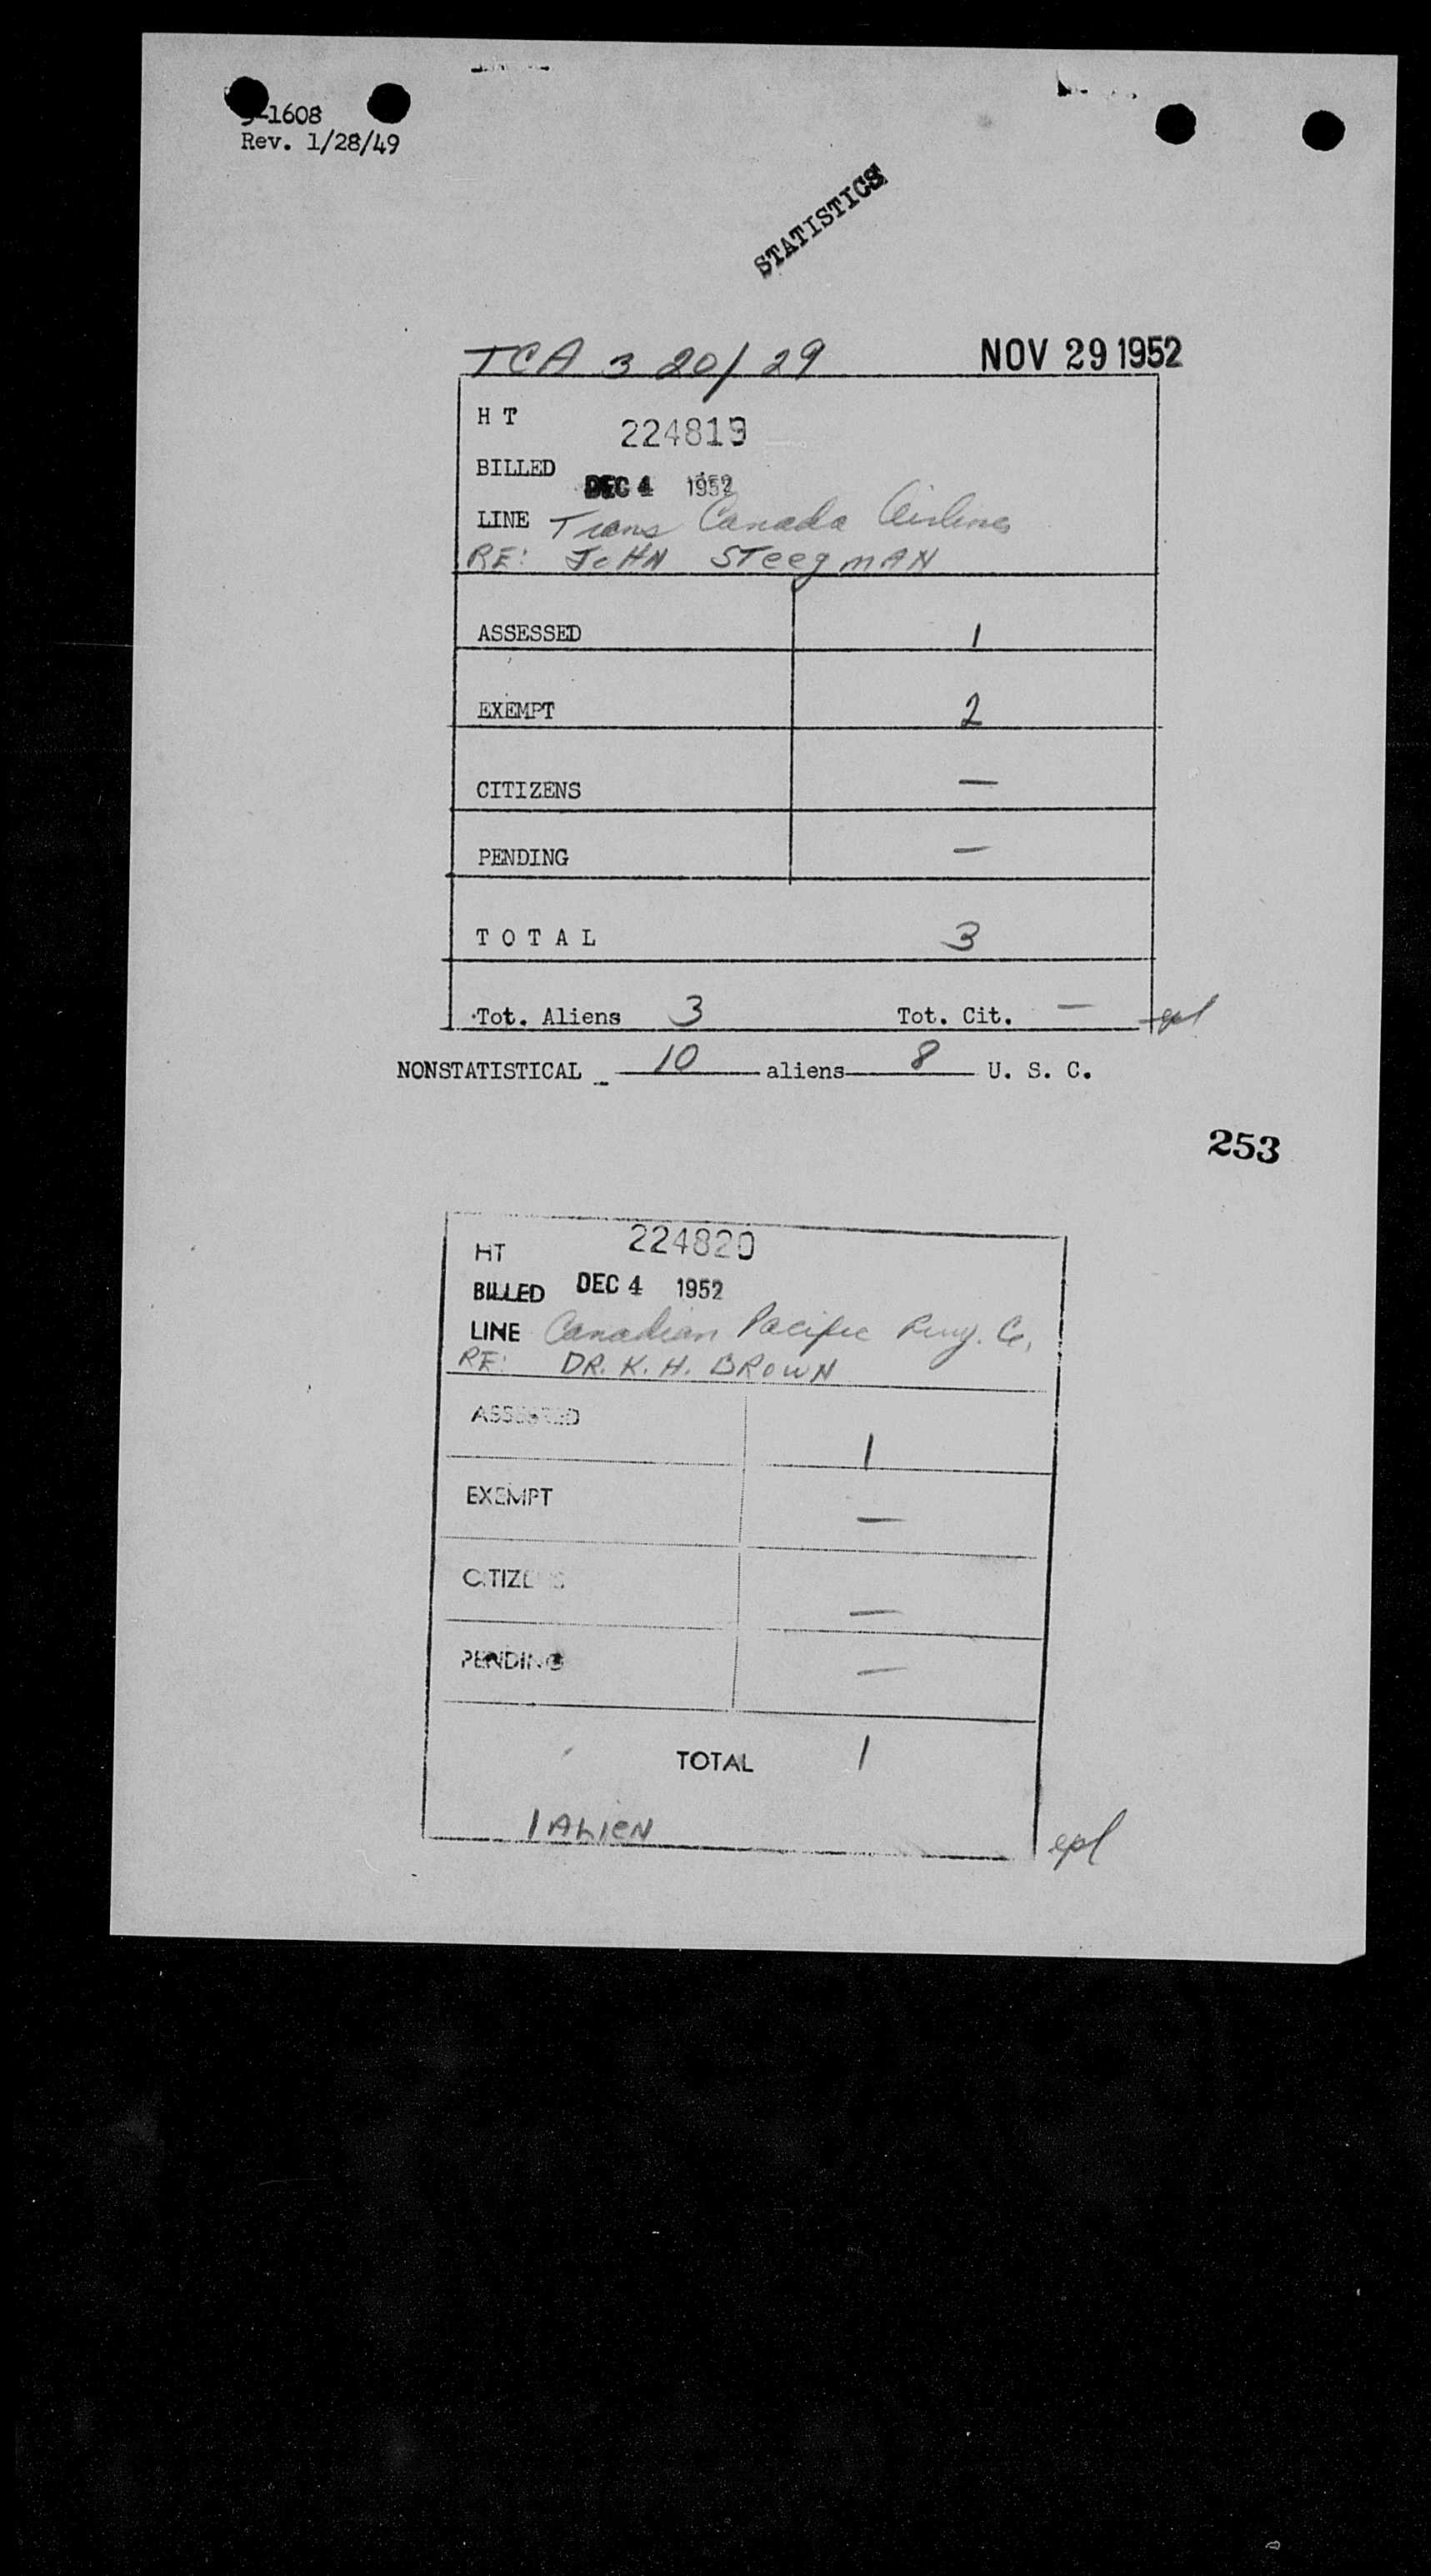 -1608
Rev. 1/28/49
STATISTICS
TCA 3 20/29 NOV 29 1952
H T 224819
BILLED DEC 4 1952
LINE Trans Canada Airlines
RE: JOHN STeegmAN
ASSESSED 1
EXEMPT 2
CITIZENS —
PENDING —
T O T A L 3
Tot. Aliens 3 Tot. Cit. — epl
NONSTATISTICAL 10 aliens 8 U. S. C.
253
HT 224820
BILLED DEC 4 1952
LINE Canadian Pacific Co,
RE: DR. K. H. BROWN
ASSESSED 1
EXEMPT —
CITIZENS —
PENDING —
TOTAL 1
1 ALIeN epl